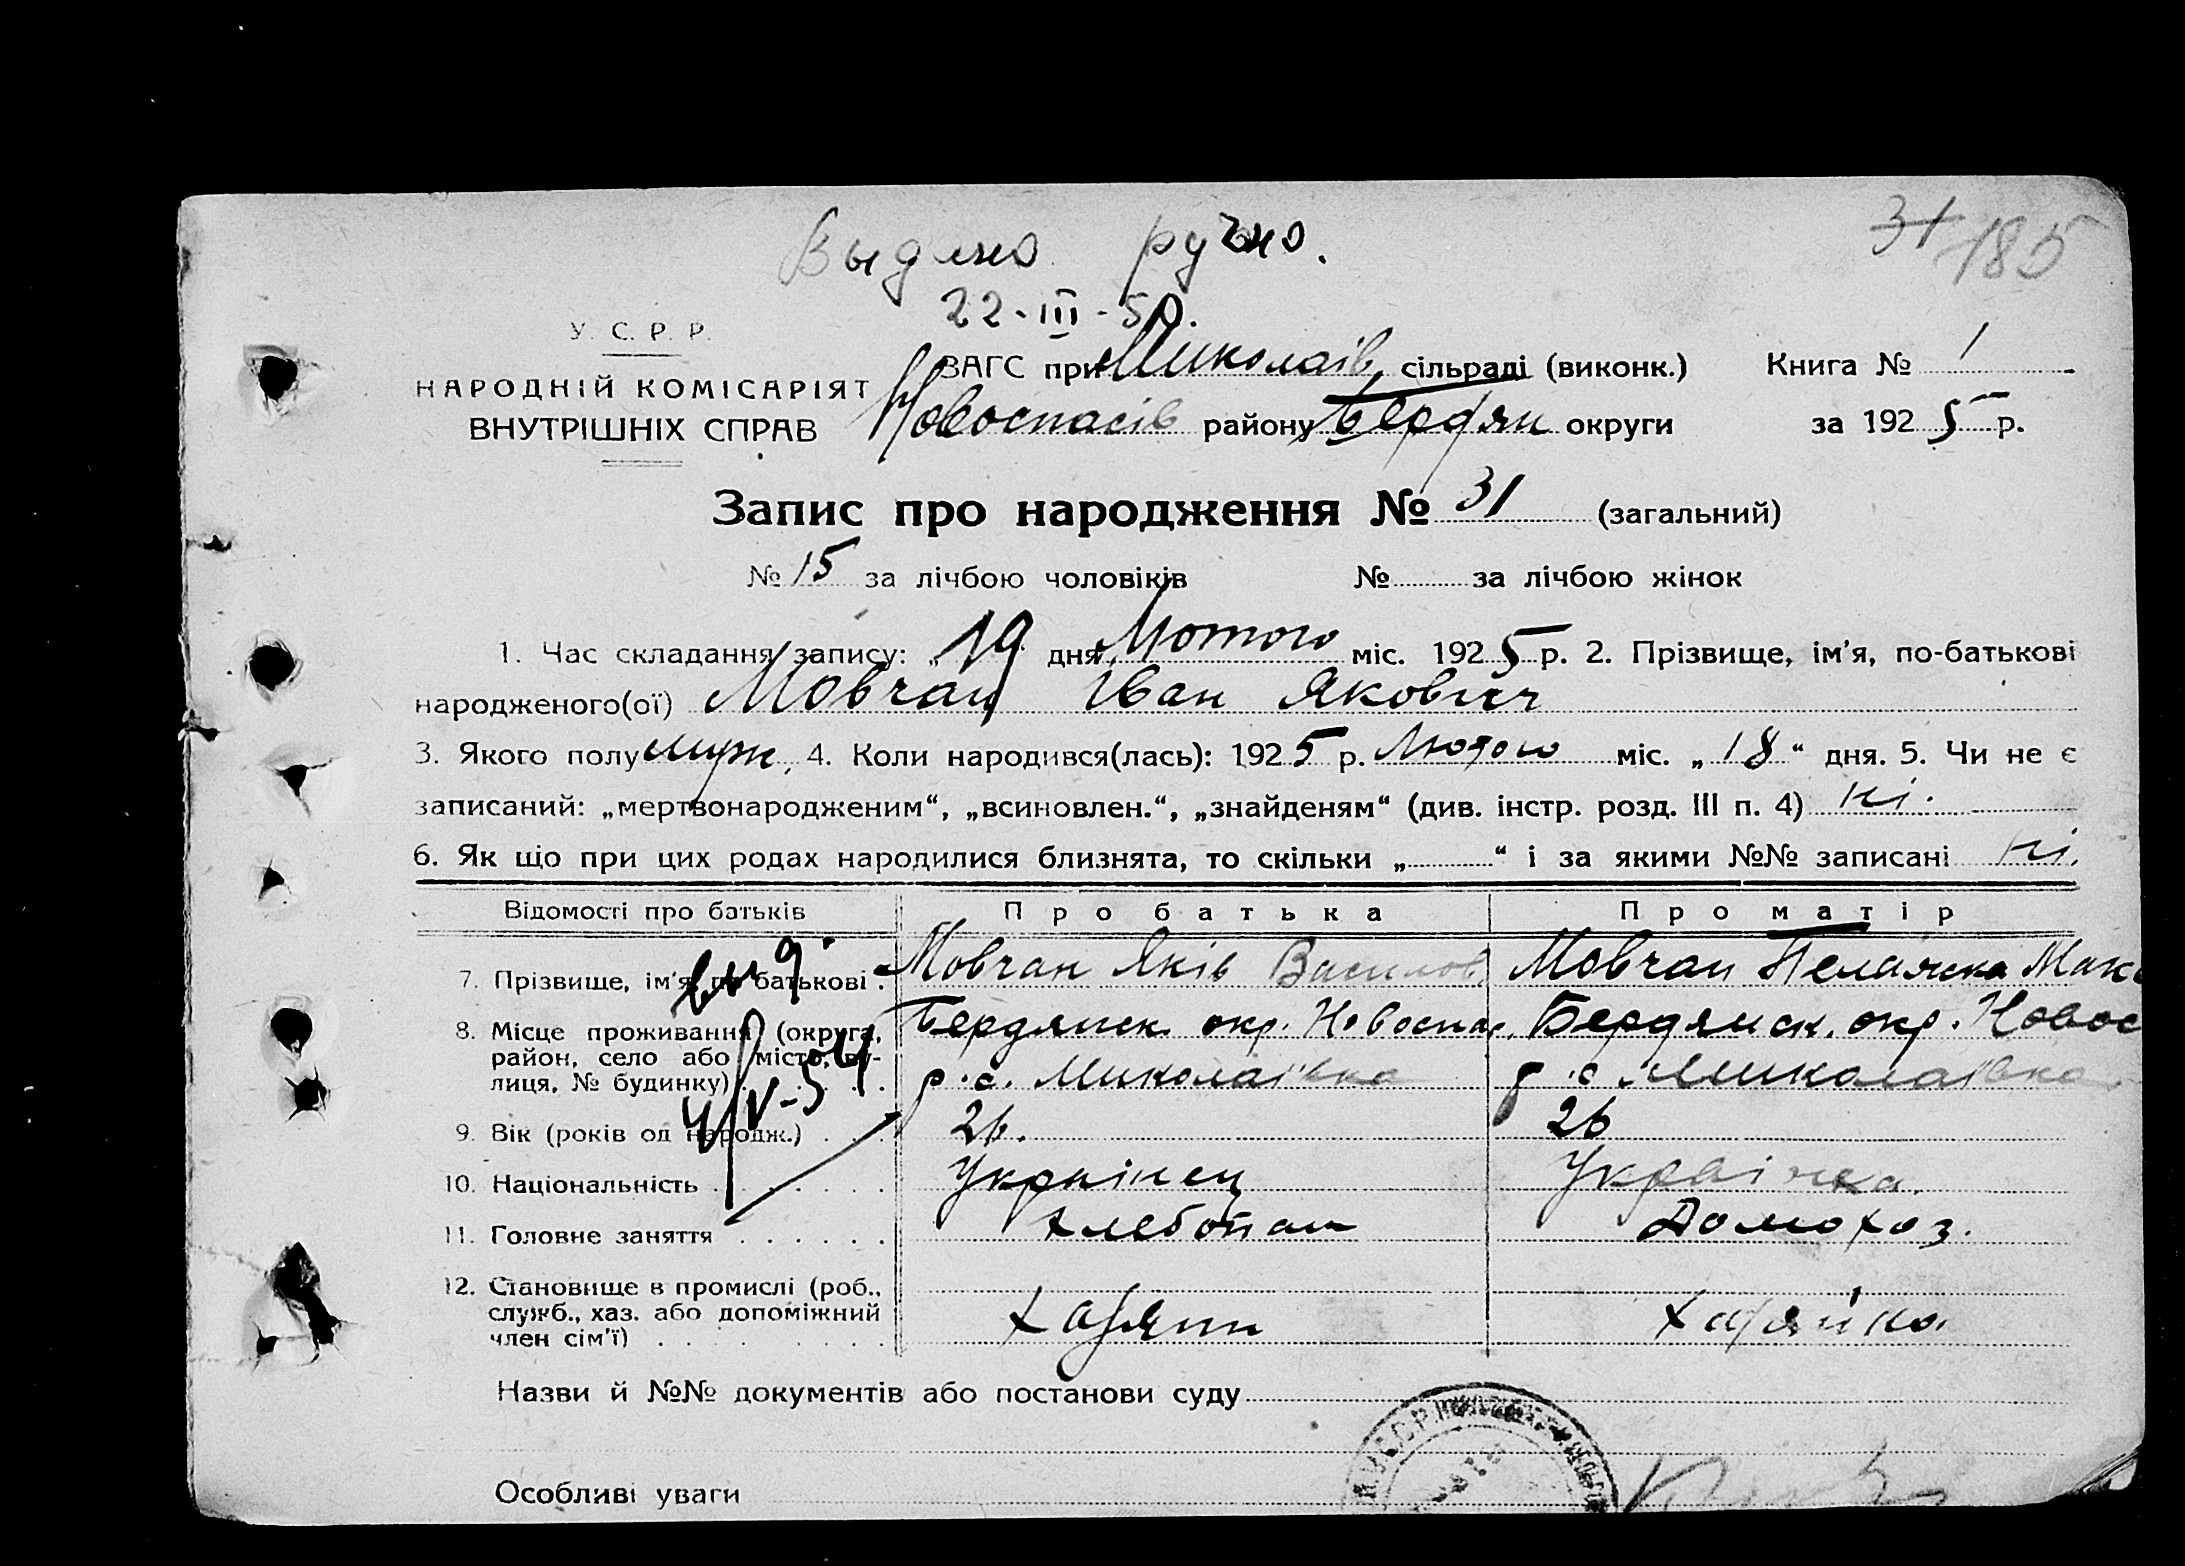 31 185
Выдано ручно.
22-III-50.
У. С. Р. Р.
НАРОДНІЙ КОМІСАРІЯТ
ВНУТРІШНІХ СПРАВ
ЗАГС при Миколаїв. сільраді (виконк.) Книга № 1
Новоспасів району Бердян округи за 1925 р.
Запис про народження № 31 (загальний)
№ 15 за лічбою чоловіків № за лічбою жінок
1. Час складання запису: „19 дня Лютого міс. 1925 р. 2. Прізвище, ім'я, по-батькові
народженого(ої) Мовчан Іван Якович
3. Якого полу муж, 4. Коли народився(лась): 1925 р. Лютого міс. „18“ дня. 5. Чи не є
записаний: „мертвонародженим“, „всиновлен.“, „знайденям“ (див. інстр. розд. III п. 4) ні.
6. Як що при цих родах народилися близнята, то скільки „ “ і за якими №№ записані ні.
Відомості про батьків Про батька Про матір
7. Прізвище, ім'я, по батькові . Мовчан Яків Василов. Мовчан Пелажка Макс
8. Місце проживання (округа, Бердянск. окр. Новоспас. Бердянск. окр. Новос
район, село або місто, ву-
лиця, № будинку) . р. с. Миколаївка р. с. Миколаївка
9. Вік (років од народж.) . . . 26. 26
10. Національність . . . . . . . Українец Українка.
11. Головне заняття . . . . . . Хлебопаш Домохоз.
12. Становище в промислі (роб.,
служб., хаз. або допоміжний
член сім'ї) . . . . . . . Хазяин Хазяйка.
Назви й №№ документів або постанови суду
Особливі уваги